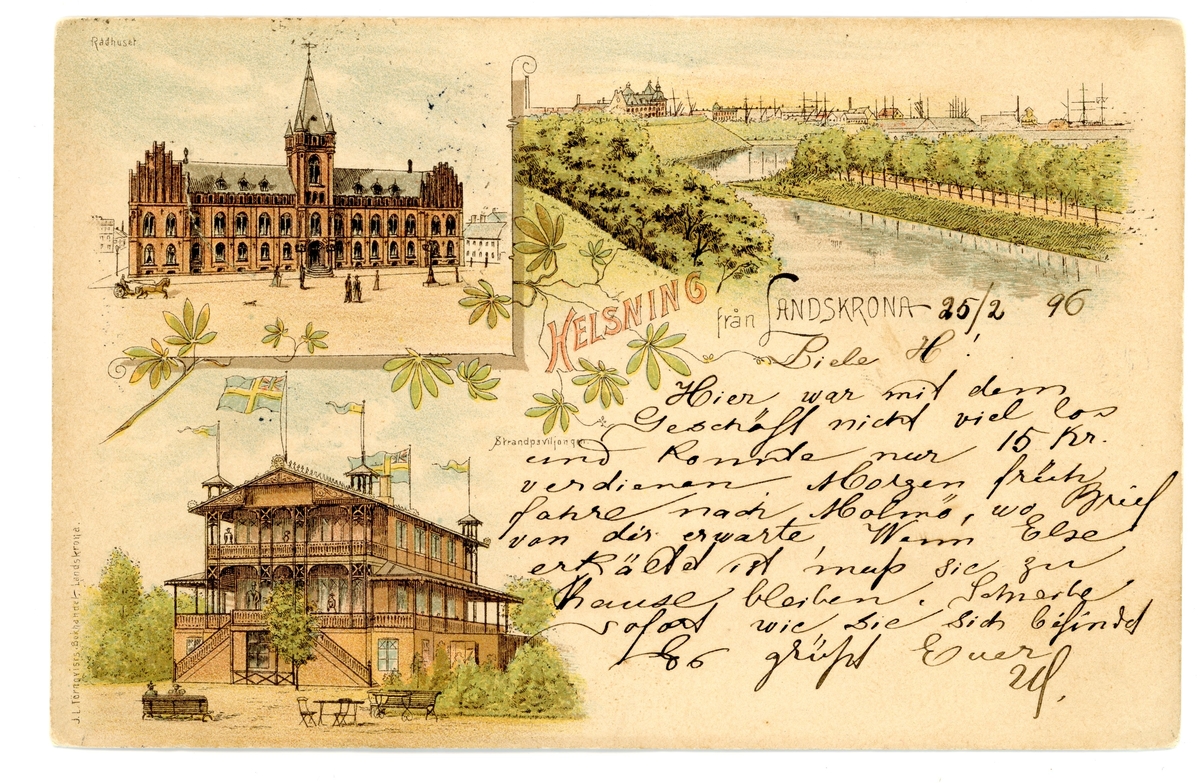 Rådhuset
HELSNING
från LANDSKRONA 25/2 96
Biele H!
Hier war mit dem
Geschäft nicht viel los
und konnte nur 15 Kr.
verdienen. Morgen früh
fahre nach Malmö, wo Brief
von dir erwarte Wenn Else
erkältet ist, muß sie zu
Hause bleiben. Schreibe
sofort wie sie sich befindet
Es grüßt Euer
Strandpaviljongen.
J. L. Törnqvists Bokhandel, Landskrona.